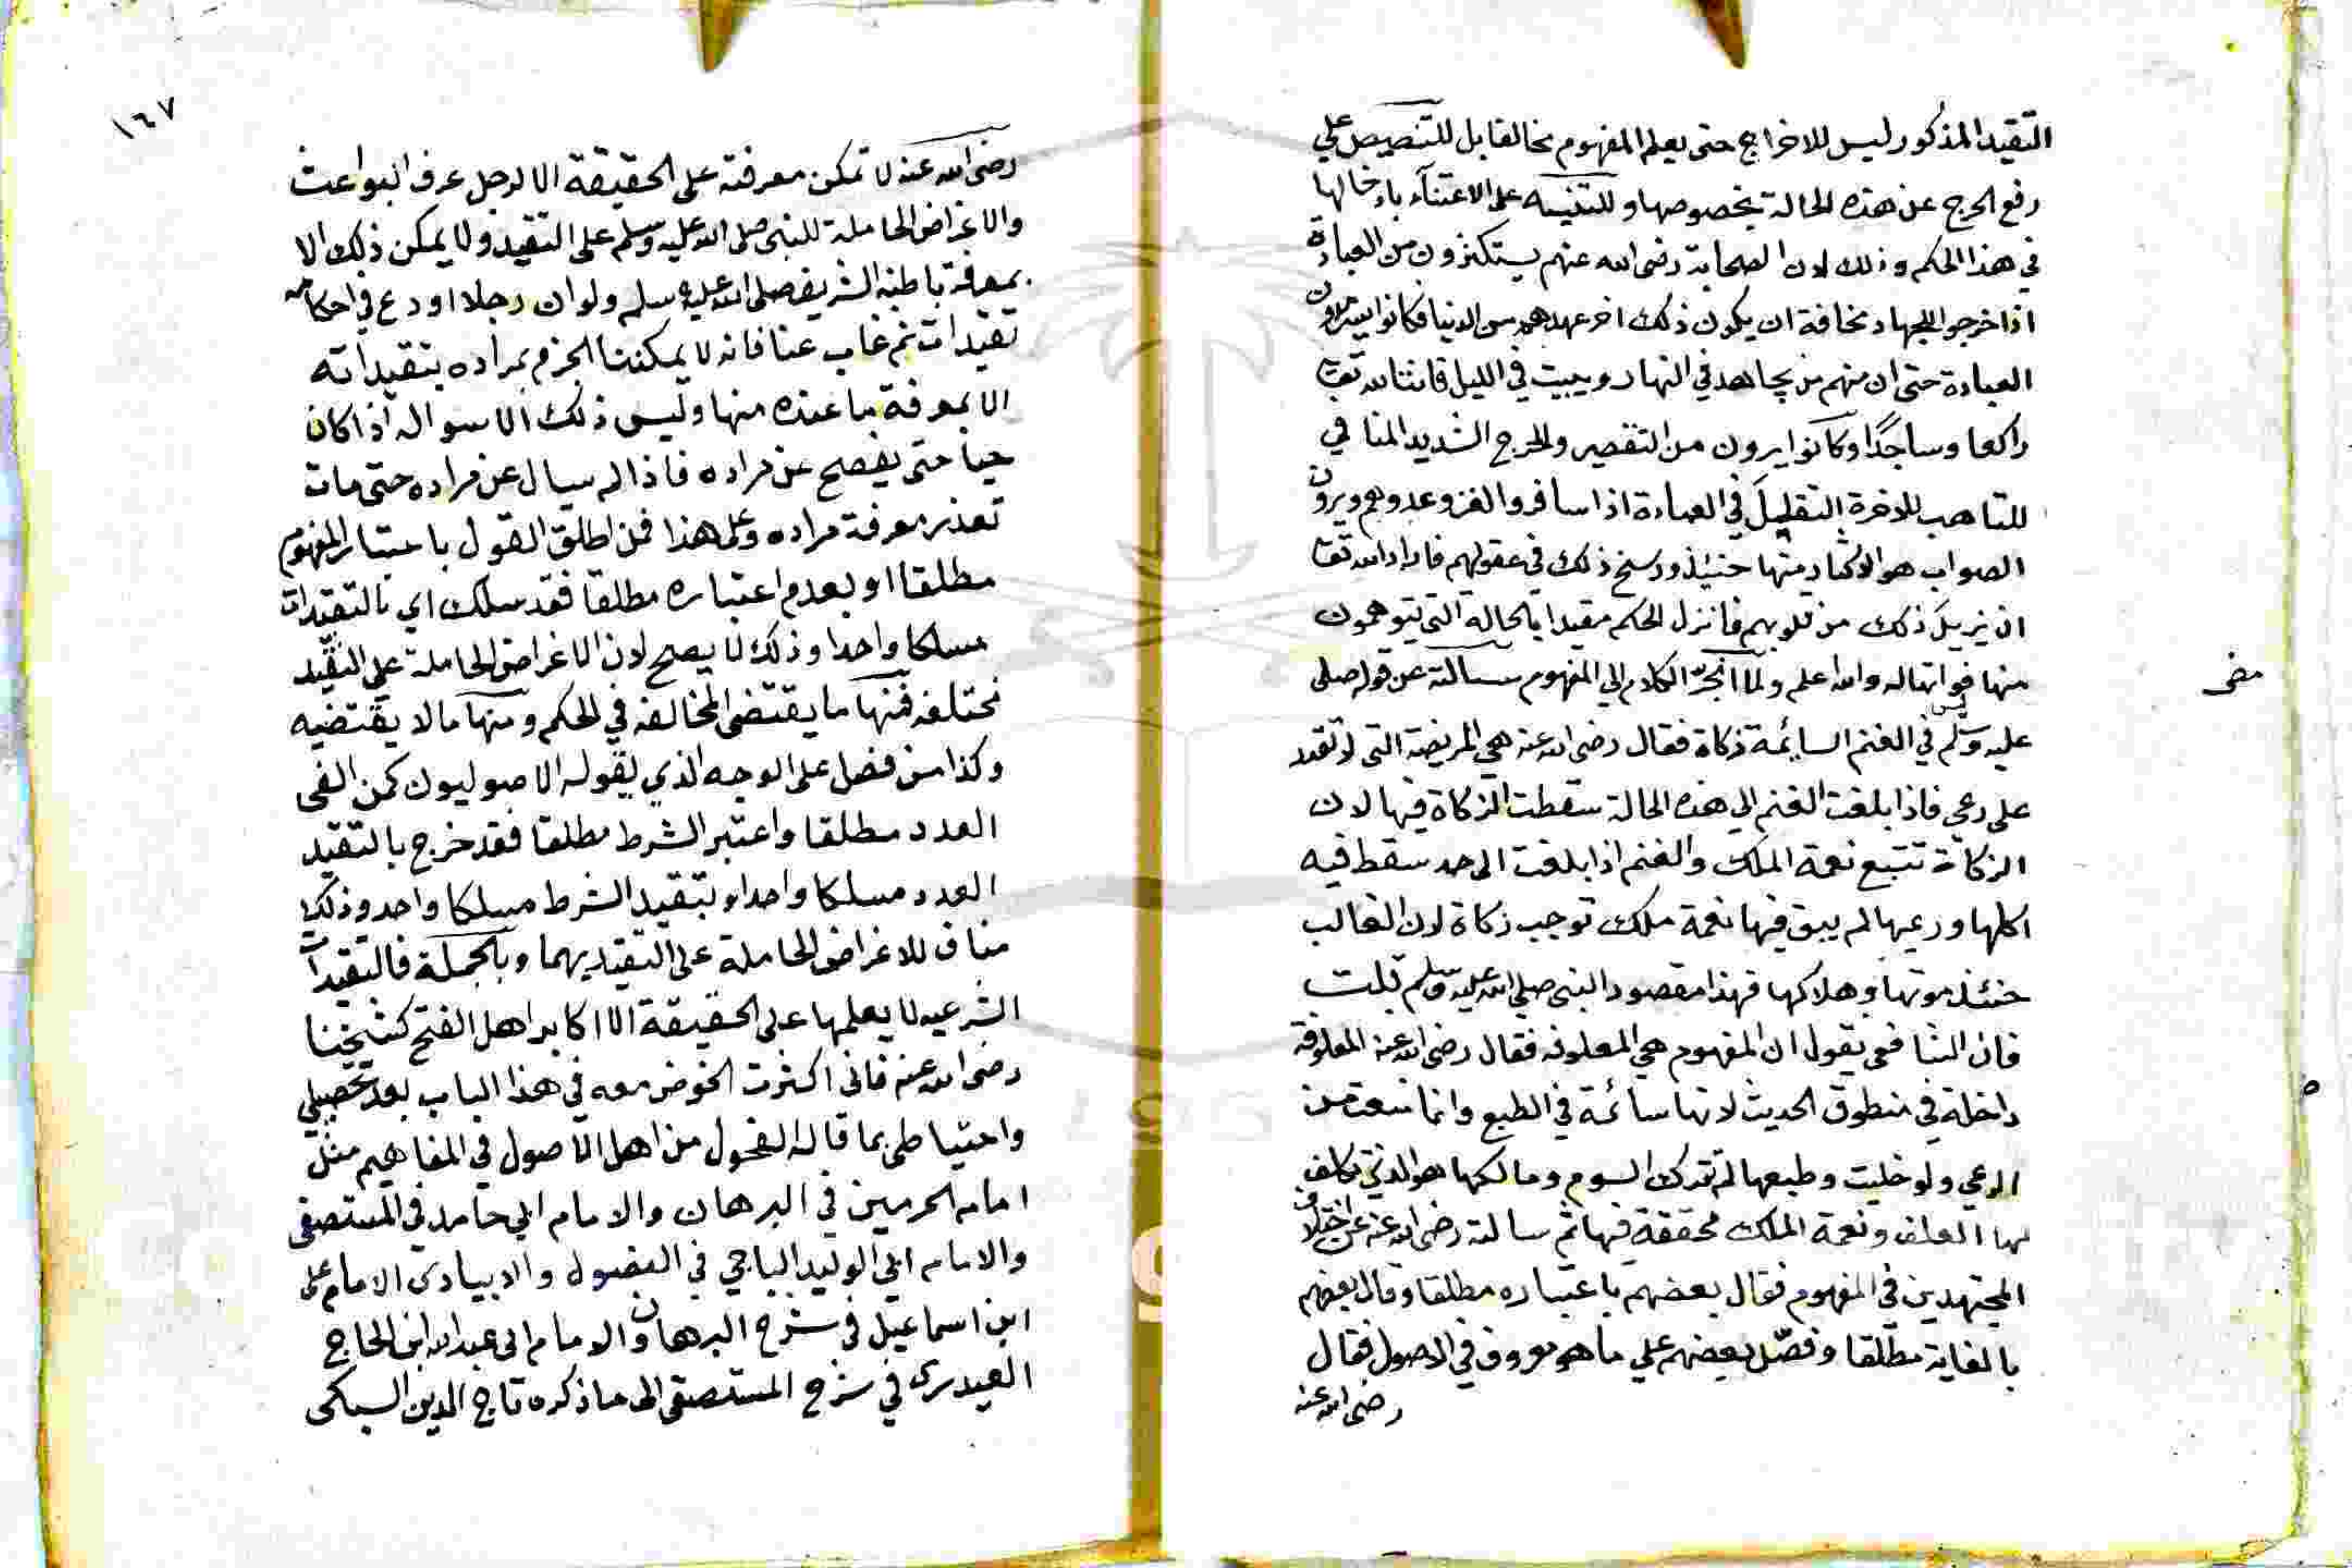 التقييد المذكور ليس للاخراج حتى يعلم المفهوم مخالفا بل للتنصيص علي
رفع الحرج عن هذه الحالة بخصوصها وللتنبيه على الاعتنآء بادخالها
في هذا الحكم وذلك لان الصحابة رضى الله عنهم يستكثرون من العبادة
اذا خرجوا للجهاد مخافة ان يكون ذلك اخر عهدهم من الدنيا فكانوا يكثرون
العبادة حتى ان منهم من يجاهد في النهار ويبيت في الليل قانتا لله تعا
راكعا وساجدا وكانوا يرون من التقصير والحرج الشديد المنافي
للتاهب للاخرة التقليل في العبادة اذا سافروا لغزو عدوهم ويرون
الصواب هو الاكثار منها حنئذ ورسخ ذلك في عقولهم فاراد الله تعا
ان يزيل ذلك من قلوبهم فانزل الحكم مقيدا بالحالة التي يتوهمون
منها فواته والله اعلم ولما انجر الكلام الي المفهوم سالته عن قوله صلى
مضى
عليه وسلم في الغنم السايمة زكاة فقال رضى الله عنه هي المريضة التي لا تقدر
على رعي فاذا بلغت الغنم الي هذه الحالة سقطت الزكاة فيها لان
الزكاة تتبع نعمة الملك والغنم اذا بلغت الى حد سقط فيه
اكلها ورعيها لم يبق فيها نعمة ملك توجب زكاة لان الغالب
حنئذ موتها وهلاكها فهذا مقصود النبى صلى الله عليه وسلم قلت
فان الشافعي يقول ان المفهوم هي المعلوفه فقال رضى الله عنه المعلوفة
داخلة في منطوق الحديث لانها سائمة في الطبع وانما منعت من
الرعي ولو خليت وطبعها لم تترك السوم ومالكها هو الذي تكلف
لها العلف ونعمة الملك محققة فيها ثم سالته رضى الله عنه عن اختلاف
المجتهدين في المفهوم فقال بعضهم باعتباره مطلقا وقال بعضهم
بالغاية مطلقا وفصّل بعضهم علي ما هو معروف في الاصول فقال
رضى الله عنه
١٦٧
رضى الله عنه لا تمكن معرفته على الحقيقة الا لرجل عرف البواعث
والاغراض الحاملة للنبى صلى الله عليه وسلم على التقييد ولا يمكن ذلك الا
بمعرفة باطنه الشريف صلى الله عليه وسلم ولو ان رجلا اودع في احكامه
تقييدات ثم غاب عنا فانه لا يمكننا الجزم بمراده بتقييداته
الا بمعرفة ما عنده منها وليس ذلك الا سواله اذا كان
حيا حتى يفصح عن مراده فاذا لم يسال عن مراده حتى مات
تعذر معرفة مراده وعلى هذا فمن اطلق القول باعتبار المفهوم
مطلقا او بعدم اعتباره مطلقا فقد سلك اي بالتقييدات
مسلكا واحدا وذلك لا يصح لان الاغراض الحاملة على التقييد
مختلفه فمنها ما يقتضى المخالفه في الحكم ومنها ما لا يقتضيه
وكذا من فصل على الوجه الذي يقوله الاصوليون كمن الغى
العدد مطلقا واعتبر الشرط مطلقا فقد خرج بالتقييد
العدد مسلكا واحدا وبتقييد الشرط مسلكا واحد وذلك
مناف للاغراض الحاملة على التقييد بهما وبالجملة فالتقييدات
الشرعيه لا يعلمها على الحقيقة الا اكابر اهل الفتح كشيخنا
رضى الله عنه فانى اكثرت الخوض معه في هذا الباب بعد تحصيلي
واحتياطى بما قاله الفحول من اهل الاصول في المفاهيم مثل
امام الحرمين في البرهان والامام ابي حامد في المستصفى
والامام ابي الوليد الباجي في الفصول والابيارى الامام على
ابن اسماعيل في شرح البرهان والامام ابى عبد الله ابن الحاج
العبدرى في شرح المستصفى الى ما ذكره تاج الدين السبكى